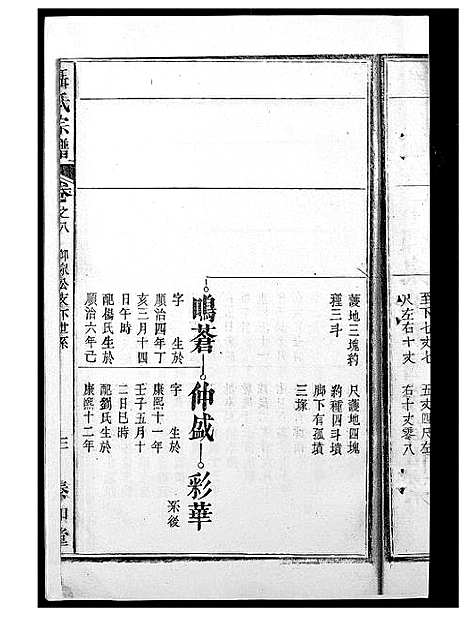 至下七丈七
尺左右十丈
五丈四尺左
右十丈零八
護地三塊豹
種三斗
尺護地四塊
豹種四斗墳
脚下有孤墳
三塚
鳴蒼
仲盛
彩華
字 生於
順治四年丁
亥三月十四
日午時
配楊氏生於
順治六年己
字 生於
康熙十一年
壬子五月十
二日巳時
配劉氏生於
康熙十二年
系後
氏宗譜
卷之八
世系
三